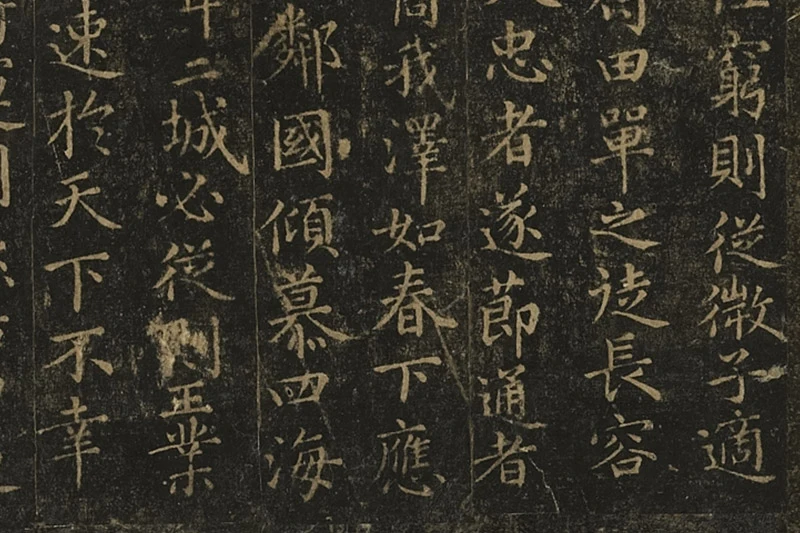 窮則從微子適
田單之徒長容
忠者遂節通者
我澤如春下應
鄰國傾慕四海
二城必從則王業
速於天下不幸